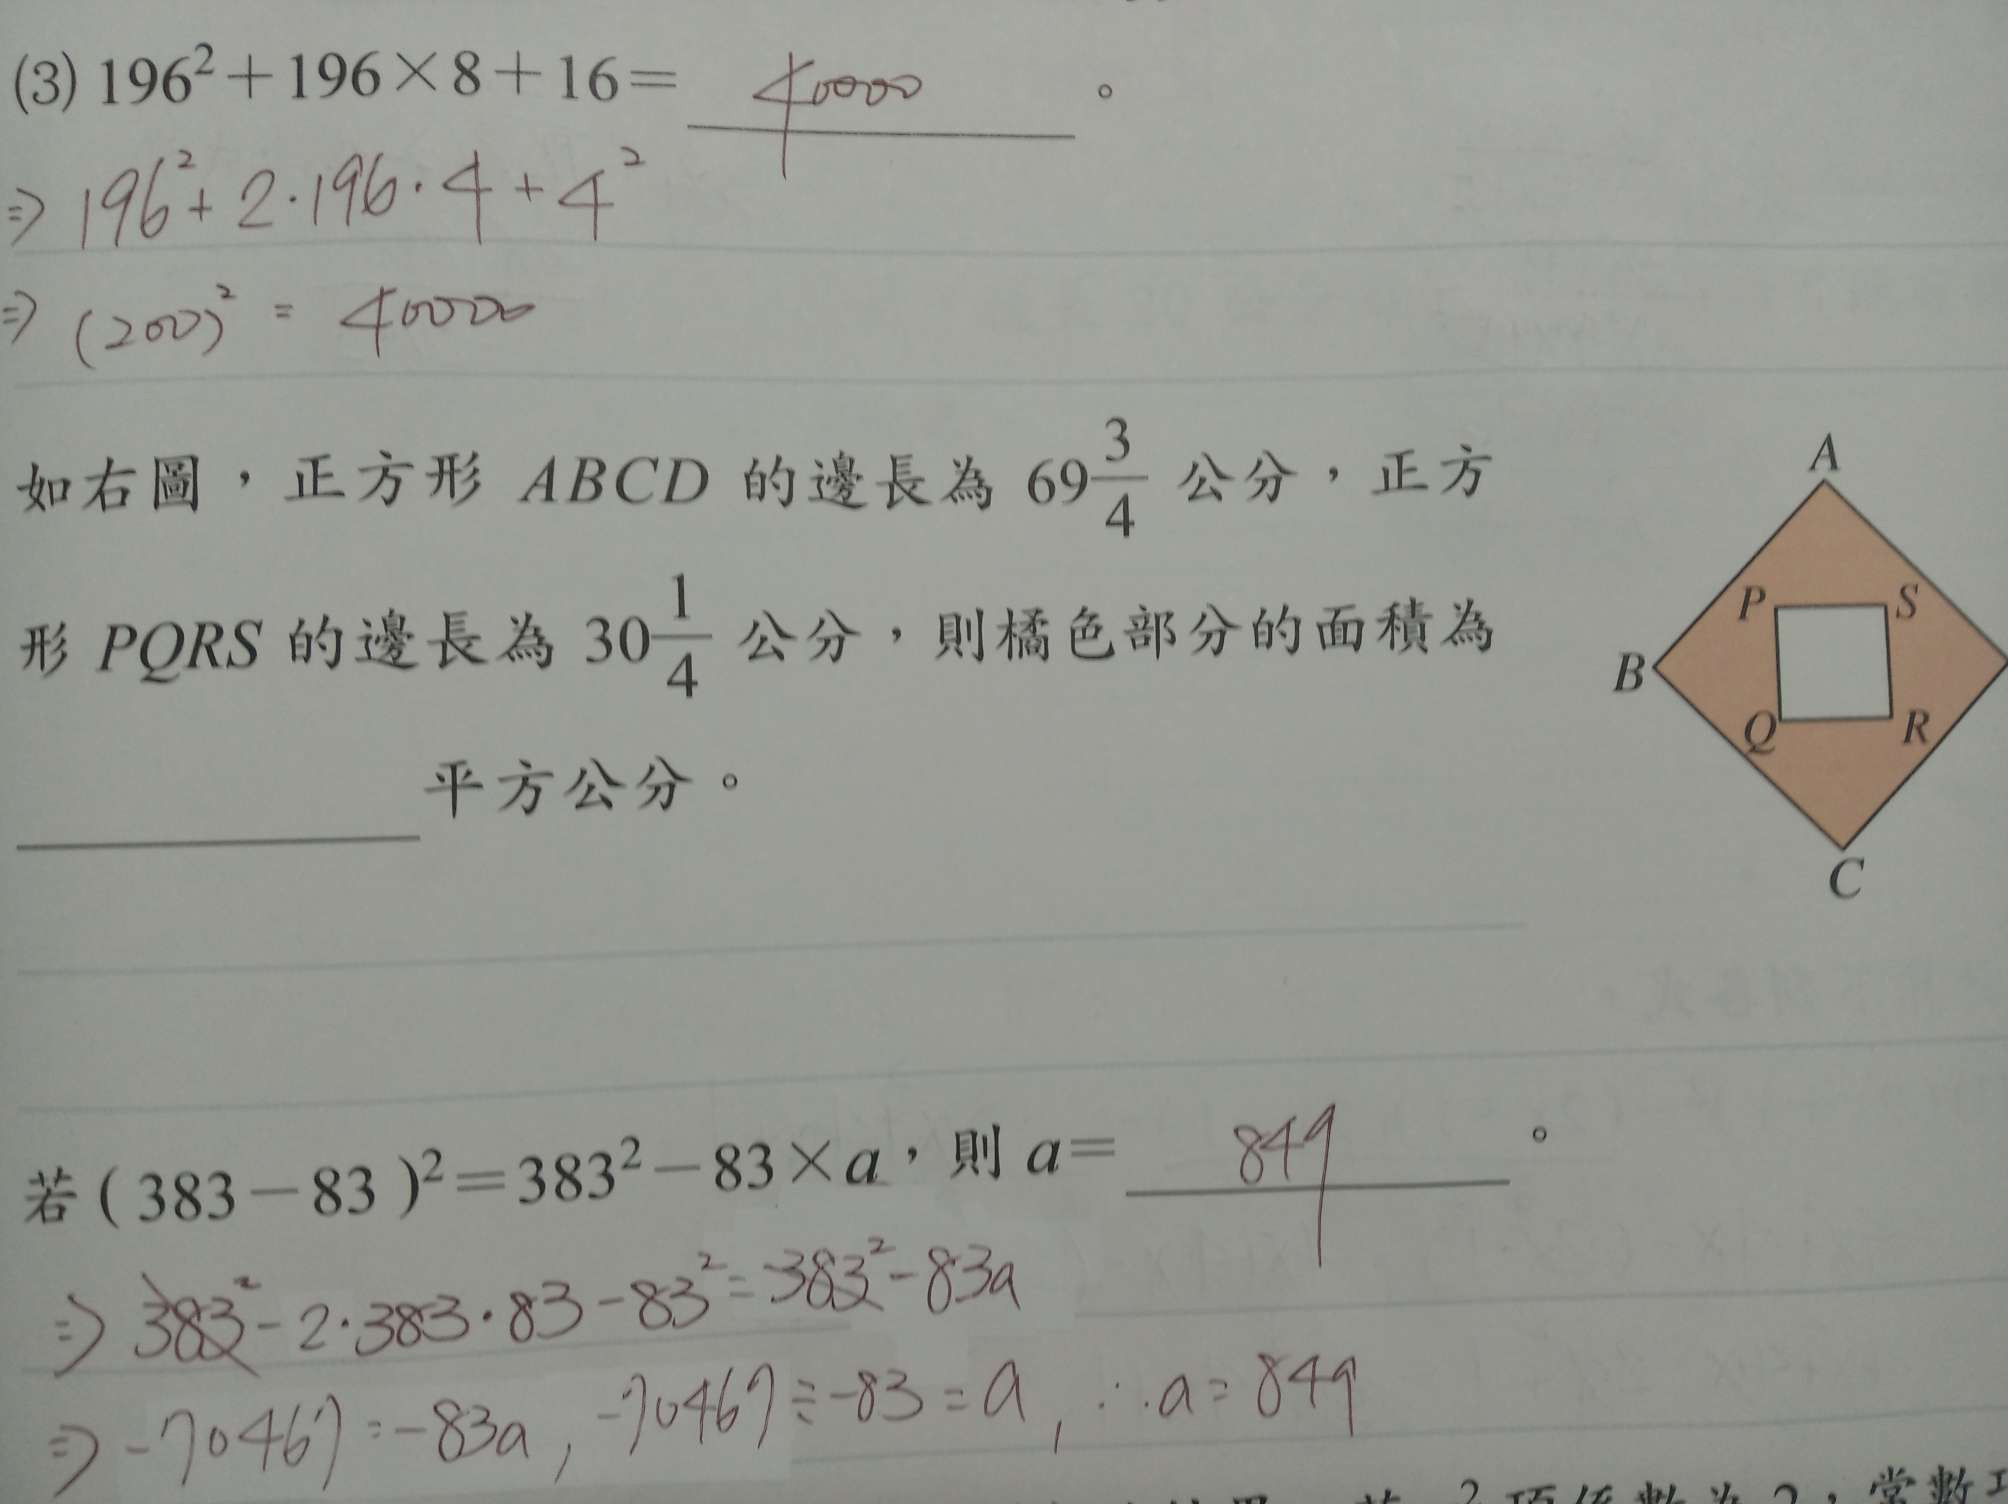 (3) 196²+196×8+16= 40000 。
⇒ 196²+2·196·4+4²
⇒ (200)² = 40000
如右圖，正方形 ABCD 的邊長為 69 3/4 公分，正方
形 PQRS 的邊長為 30 1/4 公分，則橘色部分的面積為
平方公分。
A
P S
B
Q R
C
若(383－83)²=383²－83×a，則 a= 849 。
⇒ 383²-2·383·83-83²=383²-83a
⇒ -70467=-83a, -70467÷-83=a, ∴a=849
項係數為2，常數項